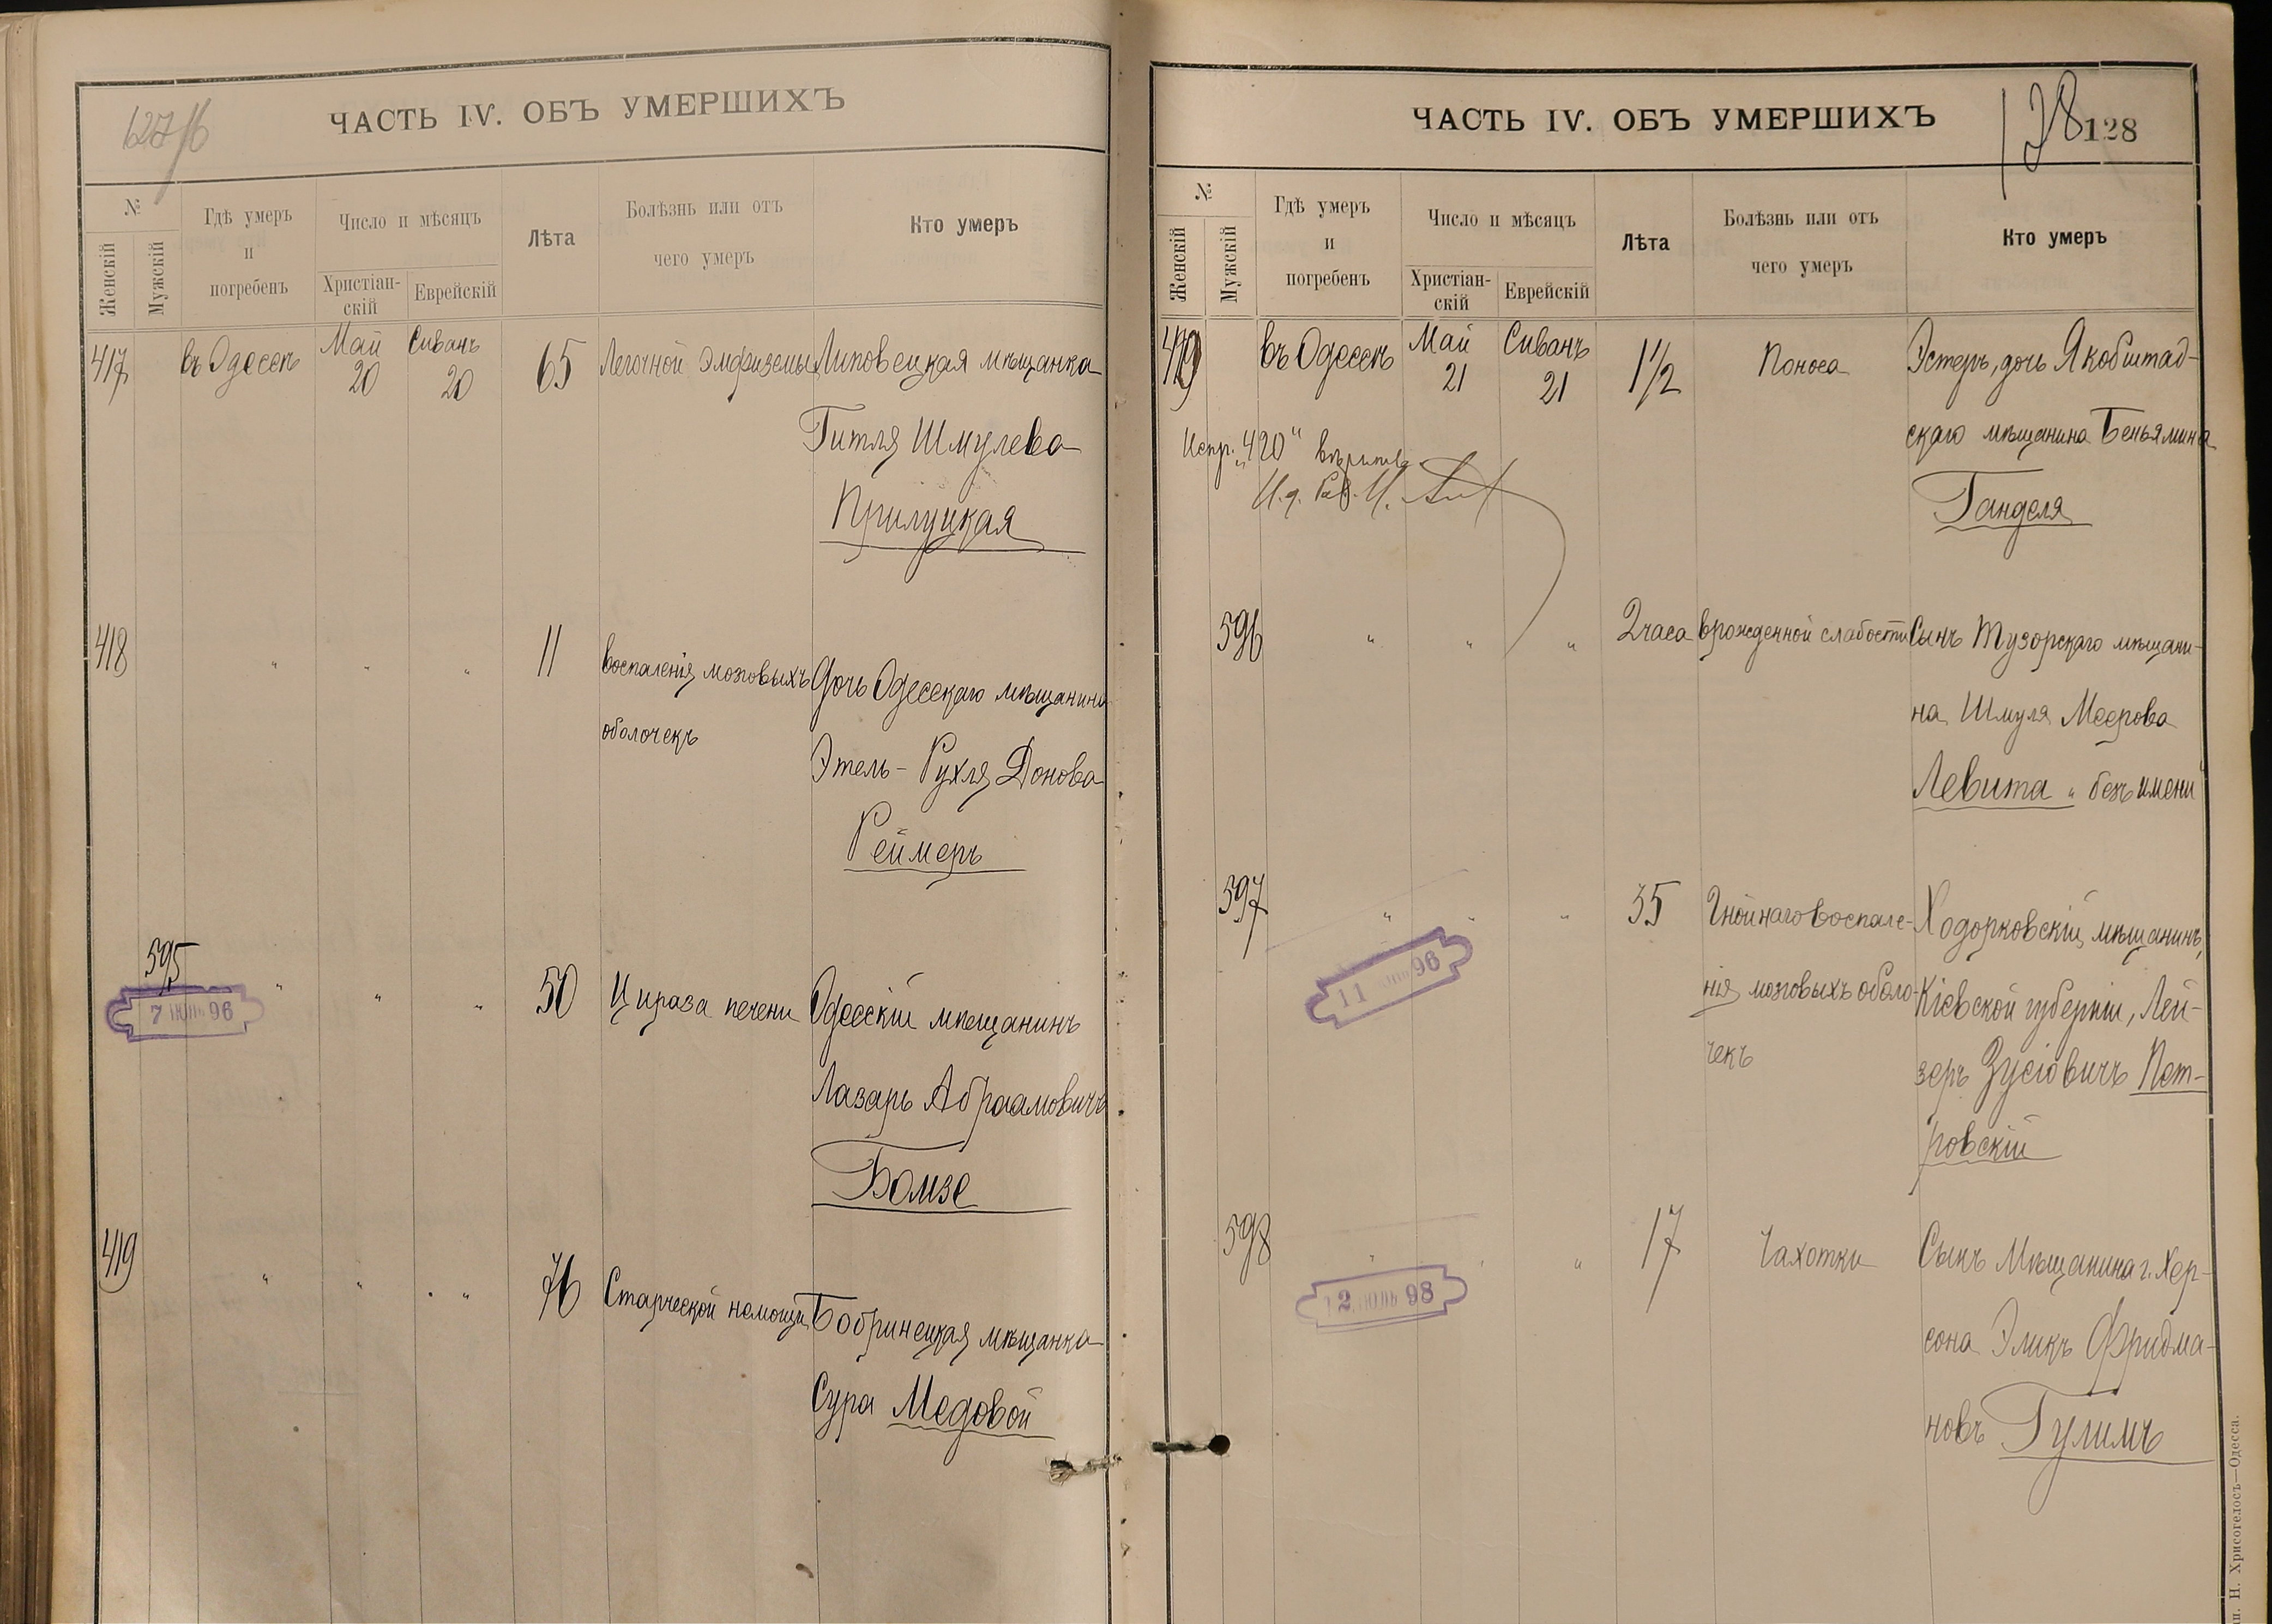 127/б
ЧАСТЬ IV. ОБЪ УМЕРШИХЪ
№
Женскій
Мужскій
Гдѣ умеръ
и
погребенъ
Число и мѣсяцъ
Христіан-
скій
Еврейскій
Лѣта
Болѣзнь или отъ
чего умеръ
Кто умеръ
417 въ Одессѣ Май 20 Сиванъ 20 65 Легочной эмфиземы Липовецкая мѣщанка
Гитля Шмулева
Прилуцкая
418 " " " 11 воспаленія мозговыхъ Дочь Одесскаго мѣщанина
оболочекъ Этель-Рухля Донова
Реймеръ
595 " " " 50 Цироза печени Одесскій мѣщанинъ
7 ІЮНЬ 96
Лазарь Абраамовичъ
Бомзе
419 " " " 76 Старческой немощи Бобринецкая мѣщанка
Сура Медовой
ЧАСТЬ IV. ОБЪ УМЕРШИХЪ
128 128
№
Женскій
Мужскій
Гдѣ умеръ
и
погребенъ
Число и мѣсяцъ
Христіан-
скій
Еврейскій
Лѣта
Болѣзнь или отъ
чего умеръ
Кто умеръ
въ Одессѣ Май 21 Сиванъ 21 1 1/2 Поноса Эстеръ, дочь Якобштад-
скаго мѣщанина Беньямина
Ганделя
Испр. "420" вѣрить
И. д. Рав. И.
596 " " " 2 часа врожденной слабости Сынъ Тузорскаго мѣщани-
на Шмуля Меерова
Левита "безъ имени"
597 " " " 35 Гнойнаго воспале- Ходорковскій мѣщанинъ,
нія мозговыхъ оболо- Кіевской губерніи, Лей-
чекъ зеръ Зусіовичъ Пет-
ровскій
11 96
598 " " " 17 Чахотки Сынъ Мѣщанина г. Хер-
сона Эликъ Фридма-
новъ Гулимъ
2 ІЮЛЬ 98
Н. Хрисогелосъ—Одесса.